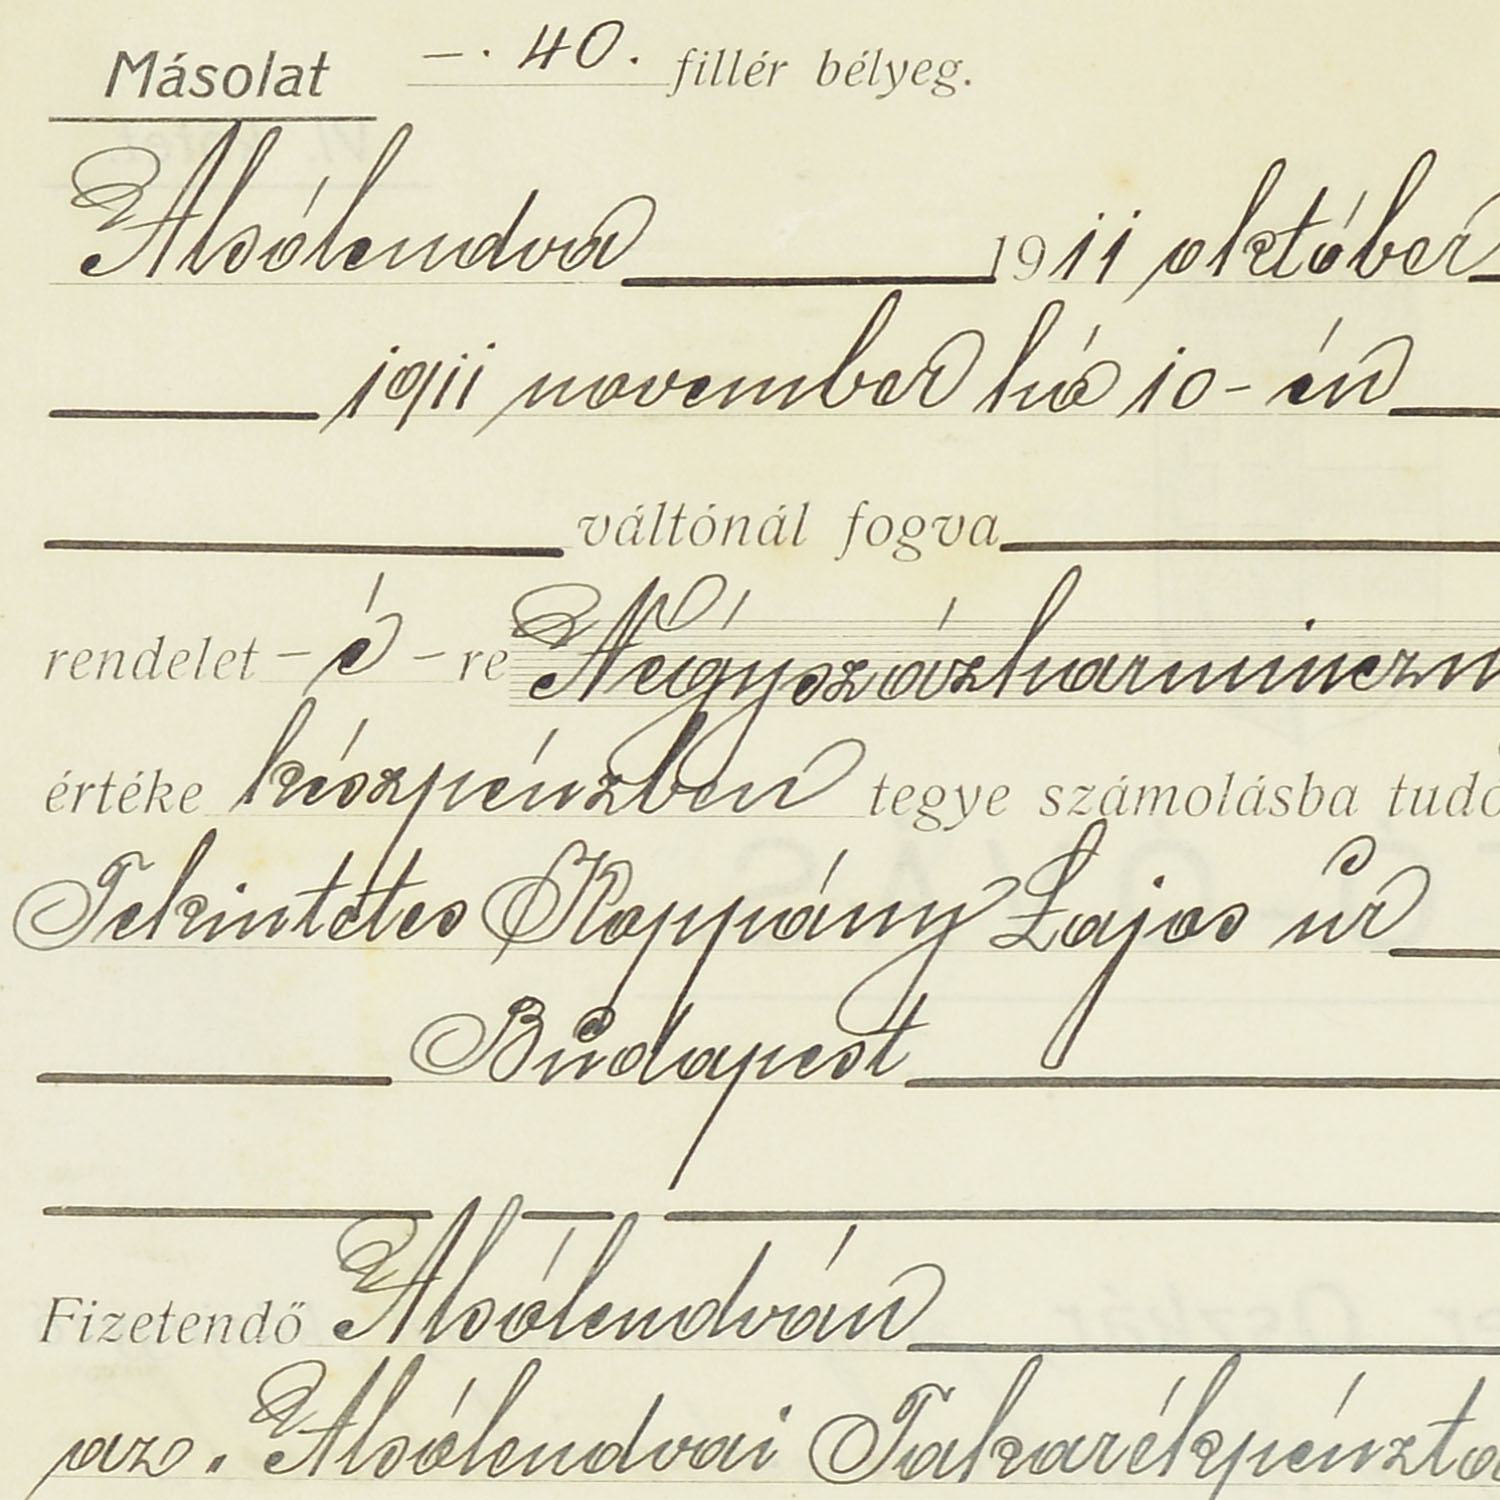 Másolat –. 40. fillér bélyeg.
Alsólendva 1911 október
1911 november hó 10-én
váltónál fogva
rendelet – é – re Négyszázharminczn
értéke készpénzben tegye számolásba tudó
Tekintetes Koppány Lajos úr
Budapest
Fizetendő Alsólendván
az. Alsólendvai Takarékpénztá